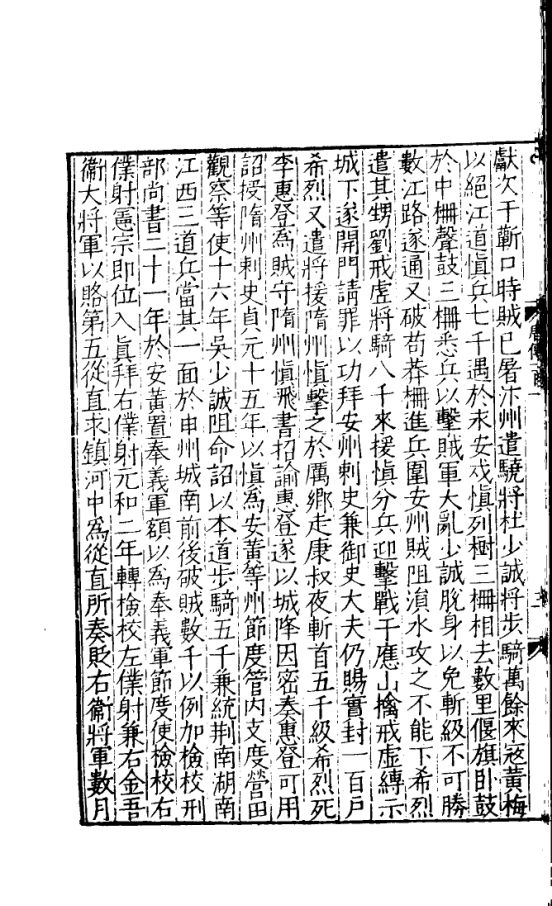 獻次于蘄口時賊已屠汴州遣驍將杜少誠將步騎萬餘來㓂黃梅
以絕江道愼兵七千遇於永安戍愼列樹三柵相去數里偃旗卧鼓
於中柵聲鼓三柵悉兵以擊賊軍大亂少誠脫身以免斬級不可勝
數江路遂通又破苟莽柵進兵圍安州賊阻溳水攻之不能下希烈
遣其甥劉戒虛將騎八千來援愼分兵迎擊戰于應山擒戒虛縛示
城下遂開門請罪以功拜安州刺史兼御史大夫仍賜實封一百戶
希烈又遣將援隋州愼擊之於厲鄉走康叔夜斬首五千級希烈死
李惠登爲賊守隋州愼飛書招諭惠登遂以城降因密奏惠登可用
詔授隋州刺史貞元十五年以愼爲安黃等州節度管內支度營田
觀察等使十六年吳少誠阻命詔以本道步騎五千兼統荆南湖南
江西三道兵當其一面於申州城南前後破賊數千以例加檢校刑
部尚書二十一年於安黃置奉義軍額以爲奉義軍節度使檢校右
僕射憲宗即位入眞拜右僕射元和二年轉檢校左僕射兼右金吾
衞大將軍以賂第五從直求鎮河中爲從直所奏貶右衞將軍數月